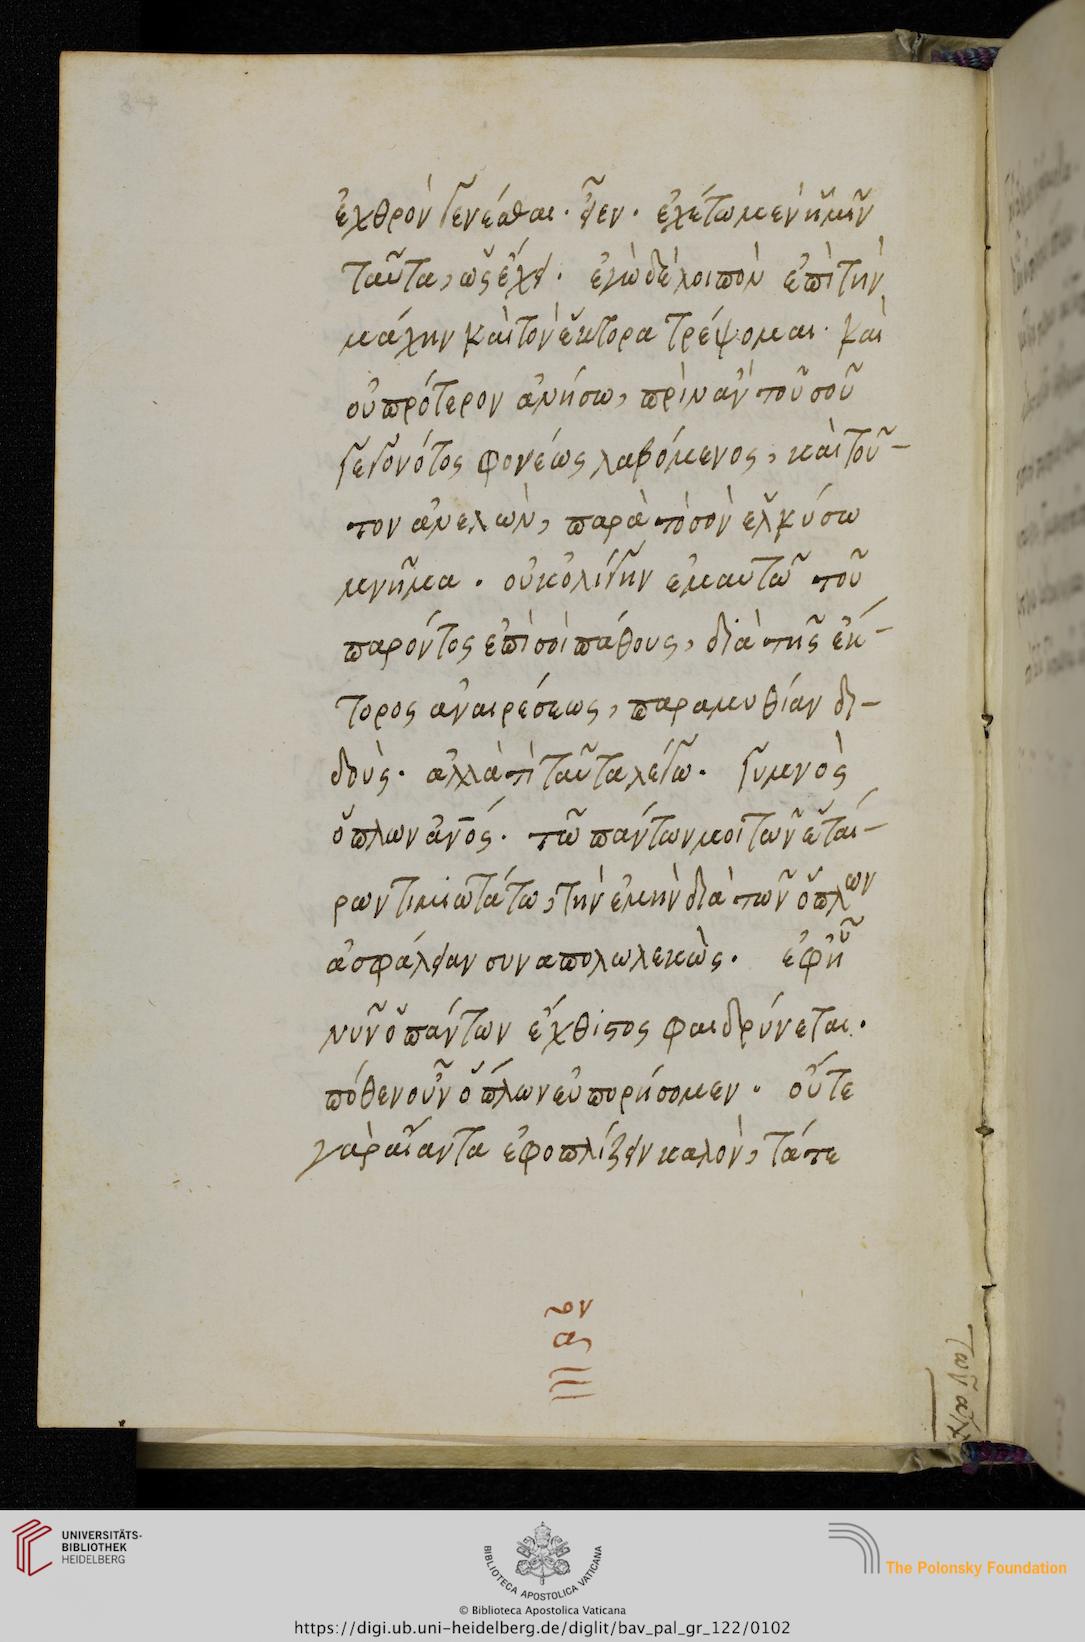 ἐχθρὸν γενέσθαι. ἐχέτω μὲν ἡμῖν
ταῦτα, ὡς ἔχει. ἐγὼ δὲ λοιπὸν ἐπὶ τὴν
μάχην καὶ τὸν ἕκτορα τρέψομαι. καὶ
οὐ πρότερον ἀνήσω, πρὶν ἂν τοῦ σοῦ
γεγονότος φονέως λαβόμενος, καὶ τοῦ-
τον ἀνελὼν, παρὰ τὸ σὸν ἑλκύσω
μνῆμα. οὐκ ὀλίγην ἐμαυτῶ τοῦ
παρόντος ἐπὶ σοὶ πάθους, διὰ τῆς ἕκ-
τορος ἀναιρέσεως, παραμυθίαν δι-
δούς. ἀλλὰ τί ταῦτα λέγω. γυμνὸς
ὅπλων αὐτός. τῶ πάντων μοι τῶν ἑταί-
ρων τιμιωτάτω, τὴν ἐμὴν διὰ τῶν ὅπλων
ἀσφάλειαν συναπολωλεκώς. ἐφ ᾗ
νῦν ὁ πάντων ἔχθιστος φαιδρύνεται.
πόθεν οὖν ὅπλων εὐπορήσομεν. οὔτε
γὰρ αἴαντα ἐφοπλίζειν καλὸν, τά τε
των αλ
UNIVERSITÄTS-
BIBLIOTHEK
HEIDELBERG
BIBLIOTECA APOSTOLICA VATICANA
The Polonsky Foundation
© Biblioteca Apostolica Vaticana
https://digi.ub.uni-heidelberg.de/diglit/bav_pal_gr_122/0102